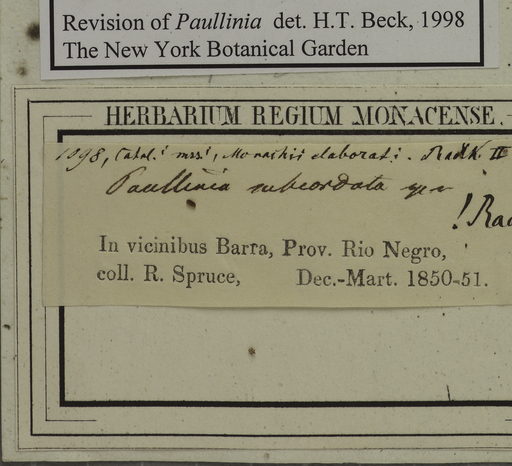 Revision of Paullinia det. H.T. Beck, 1998
The New York Botanical Garden
HERBARIUM REGIUM MONACENSE.
1098, Catal.! mss!, Monachii elaborati. Radlk. II
Paullinia subcordata
! Rad
In vicinibus Barra, Prov. Rio Negro,
coll. R. Spruce, Dec.-Mart. 1850-51.